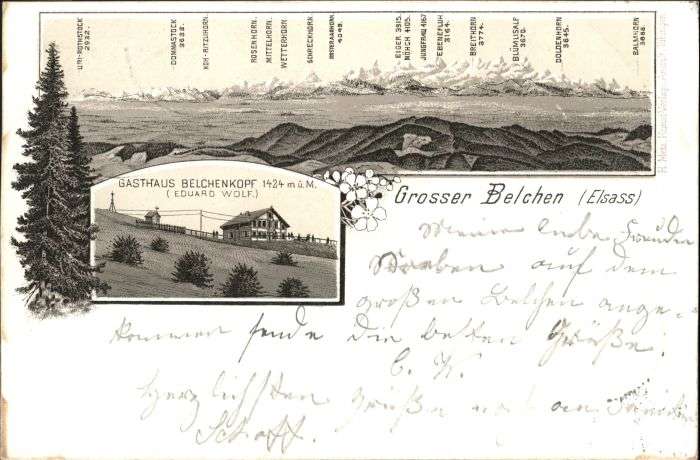 URI-ROTHSTOCK 2932.
DOMMASTOCK 3633.
KGH. RITZLIHORN.
ROSENHORN.
MITTELHORN.
WETTERHORN
SCHRECKHORN.
FINSTERAARHORN. 4049.
EIGER 3915.
MÖNCH 4105.
JUNGFRAU 4167
EBENEFLUH 3164.
BREITHORN 3774.
BLÜMLISALF 3670.
DOLDENHORN 3645.
BALMHORN 3688
GASTHAUS BELCHENKOPF 1424 m ü.M.
(EDUARD WOLF.)
Grosser Belchen (Elsass)
Meine liebe Freundin
Soeben auf dem
großen Belchen ange-
kommen sende die besten Grüße.
C. K.
Herzlichsten Grüße
Schaff.